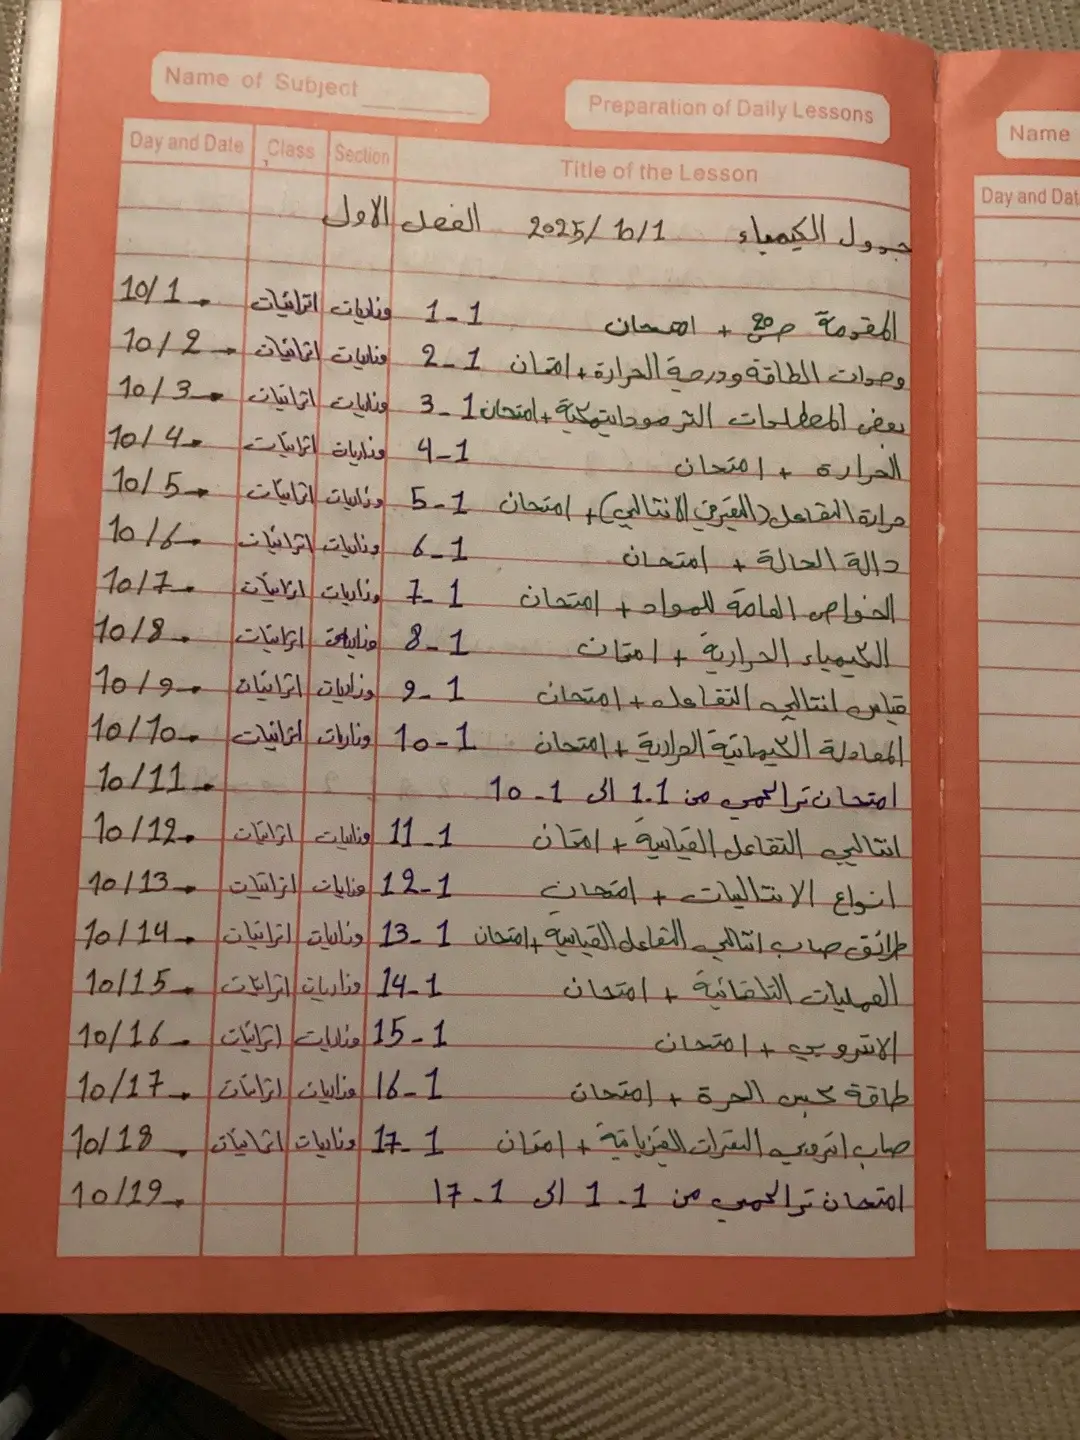 Name of Subject
Preparation of Daily Lessons
Day and Date Class Section Title of the Lesson
جدول الكيمياء 2025/10/1 الفصل الاول
المقدمة ص20 + امتحان 1-1 وزاريات اثرائيات 10/1
وحدات الطاقة ودرجة الحرارة + امتحان 2-1 وزاريات اثرائيات 10/2
بعض المصطلحات الثرموداينميكية + امتحان 3-1 وزاريات اثرائيات 10/3
الحرارة + امتحان 4-1 وزاريات اثرائيات 10/4
حرارة التفاعل (التغير في الانثالبي) + امتحان 5-1 وزاريات اثرائيات 10/5
دالة الحالة + امتحان 6-1 وزاريات اثرائيات 10/6
الخواص العامة للمواد + امتحان 7-1 وزاريات اثرائيات 10/7
الكيمياء الحرارية + امتحان 8-1 وزاريات اثرائيات 10/8
قياس انثالبي التفاعل + امتحان 9-1 وزاريات اثرائيات 10/9
المعادلة الكيميائية الحرارية + امتحان 10-1 وزاريات اثرائيات 10/10
امتحان تراكمي من 1.1 الى 1-10 10/11
انثالبي التفاعل القياسية + امتحان 11-1 وزاريات اثرائيات 10/12
انواع الانثالبيات + امتحان 12-1 وزاريات اثرائيات 10/13
طرائق حساب انثالبي التفاعل القياسية + امتحان 13-1 وزاريات اثرائيات 10/14
العمليات التلقائية + امتحان 14-1 وزاريات اثرائيات 10/15
الانتروبي + امتحان 15-1 وزاريات اثرائيات 10/16
طاقة كبس الحرة + امتحان 16-1 وزاريات اثرائيات 10/17
حساب انتروبي التغيرات الفيزيائية + امتحان 17-1 وزاريات اثرائيات 10/18
امتحان تراكمي من 1-1 الى 1-17 10/19
Name
Day and Dat